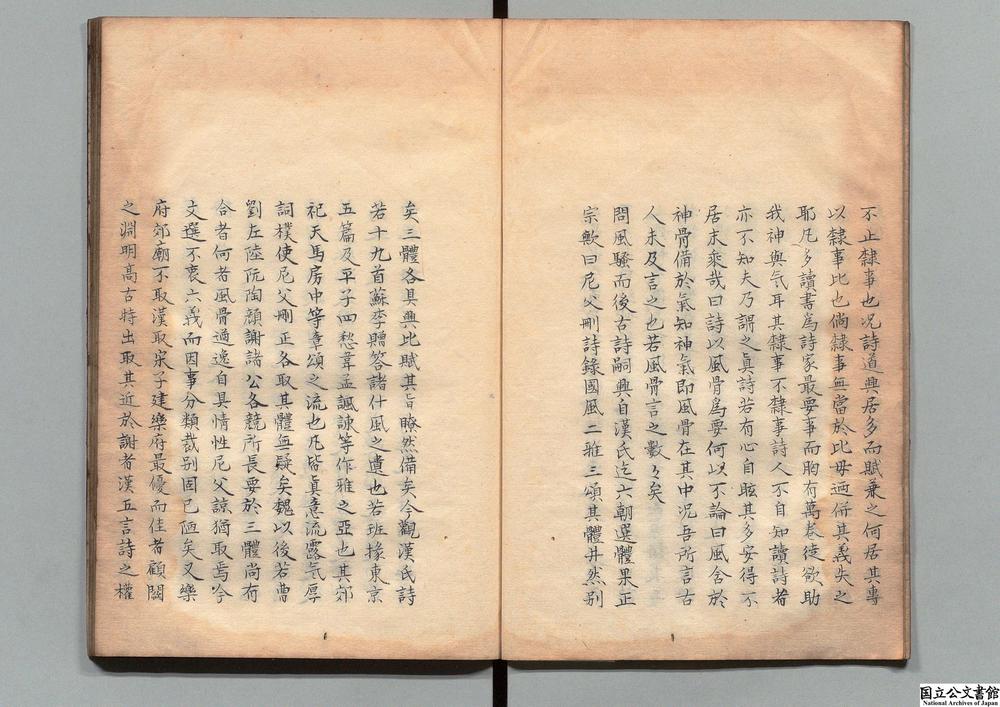 不止隸事也况詩道興居多而賦兼之何居其專
以隸事比也倘隸事無當於比毋廼併其義失之
耶凡多讀書爲詩家最要事而胸有萬卷徒欲助
我神與气耳其隸事不隸事詩人不自知讀詩者
亦不知夫乃謂之眞詩若有心自眩其多安得不
居末乘哉曰詩以風骨爲要何以不論曰風含於
神骨備於氣知神氣即風骨在其中况吾所言古
人未及言之也若風骨言之數々矣
問風騷而後古詩嗣興自漢氏迄六朝選體果正
宗歟曰尼父刪詩錄國風二雅三頌其體井然别
矣三體各具興比賦其旨瞭然備矣今觀漢氏詩
若十九首蘇李贈答諸什風之遺也若班掾東京
五篇及平子四愁韋孟諷諌等作雅之亞也其郊
祀天馬房中等章頌之流也凡皆眞意流露氣厚
詞樸使尼父刪正各取其體無疑矣魏以後若曹
劉左陸阮陶顔謝諸公各競所長要於三體尚有
合者何者風骨過逸自具情性尼父諒猶取焉今
文選不衷六義而因事分類裁别固已陋矣又樂
府郊廟不取漢取宋子建樂府最優而佳者顧闕
之淵明高古特出取其近於謝者漢五言詩之權
国立公文書館
National Archives of Japan